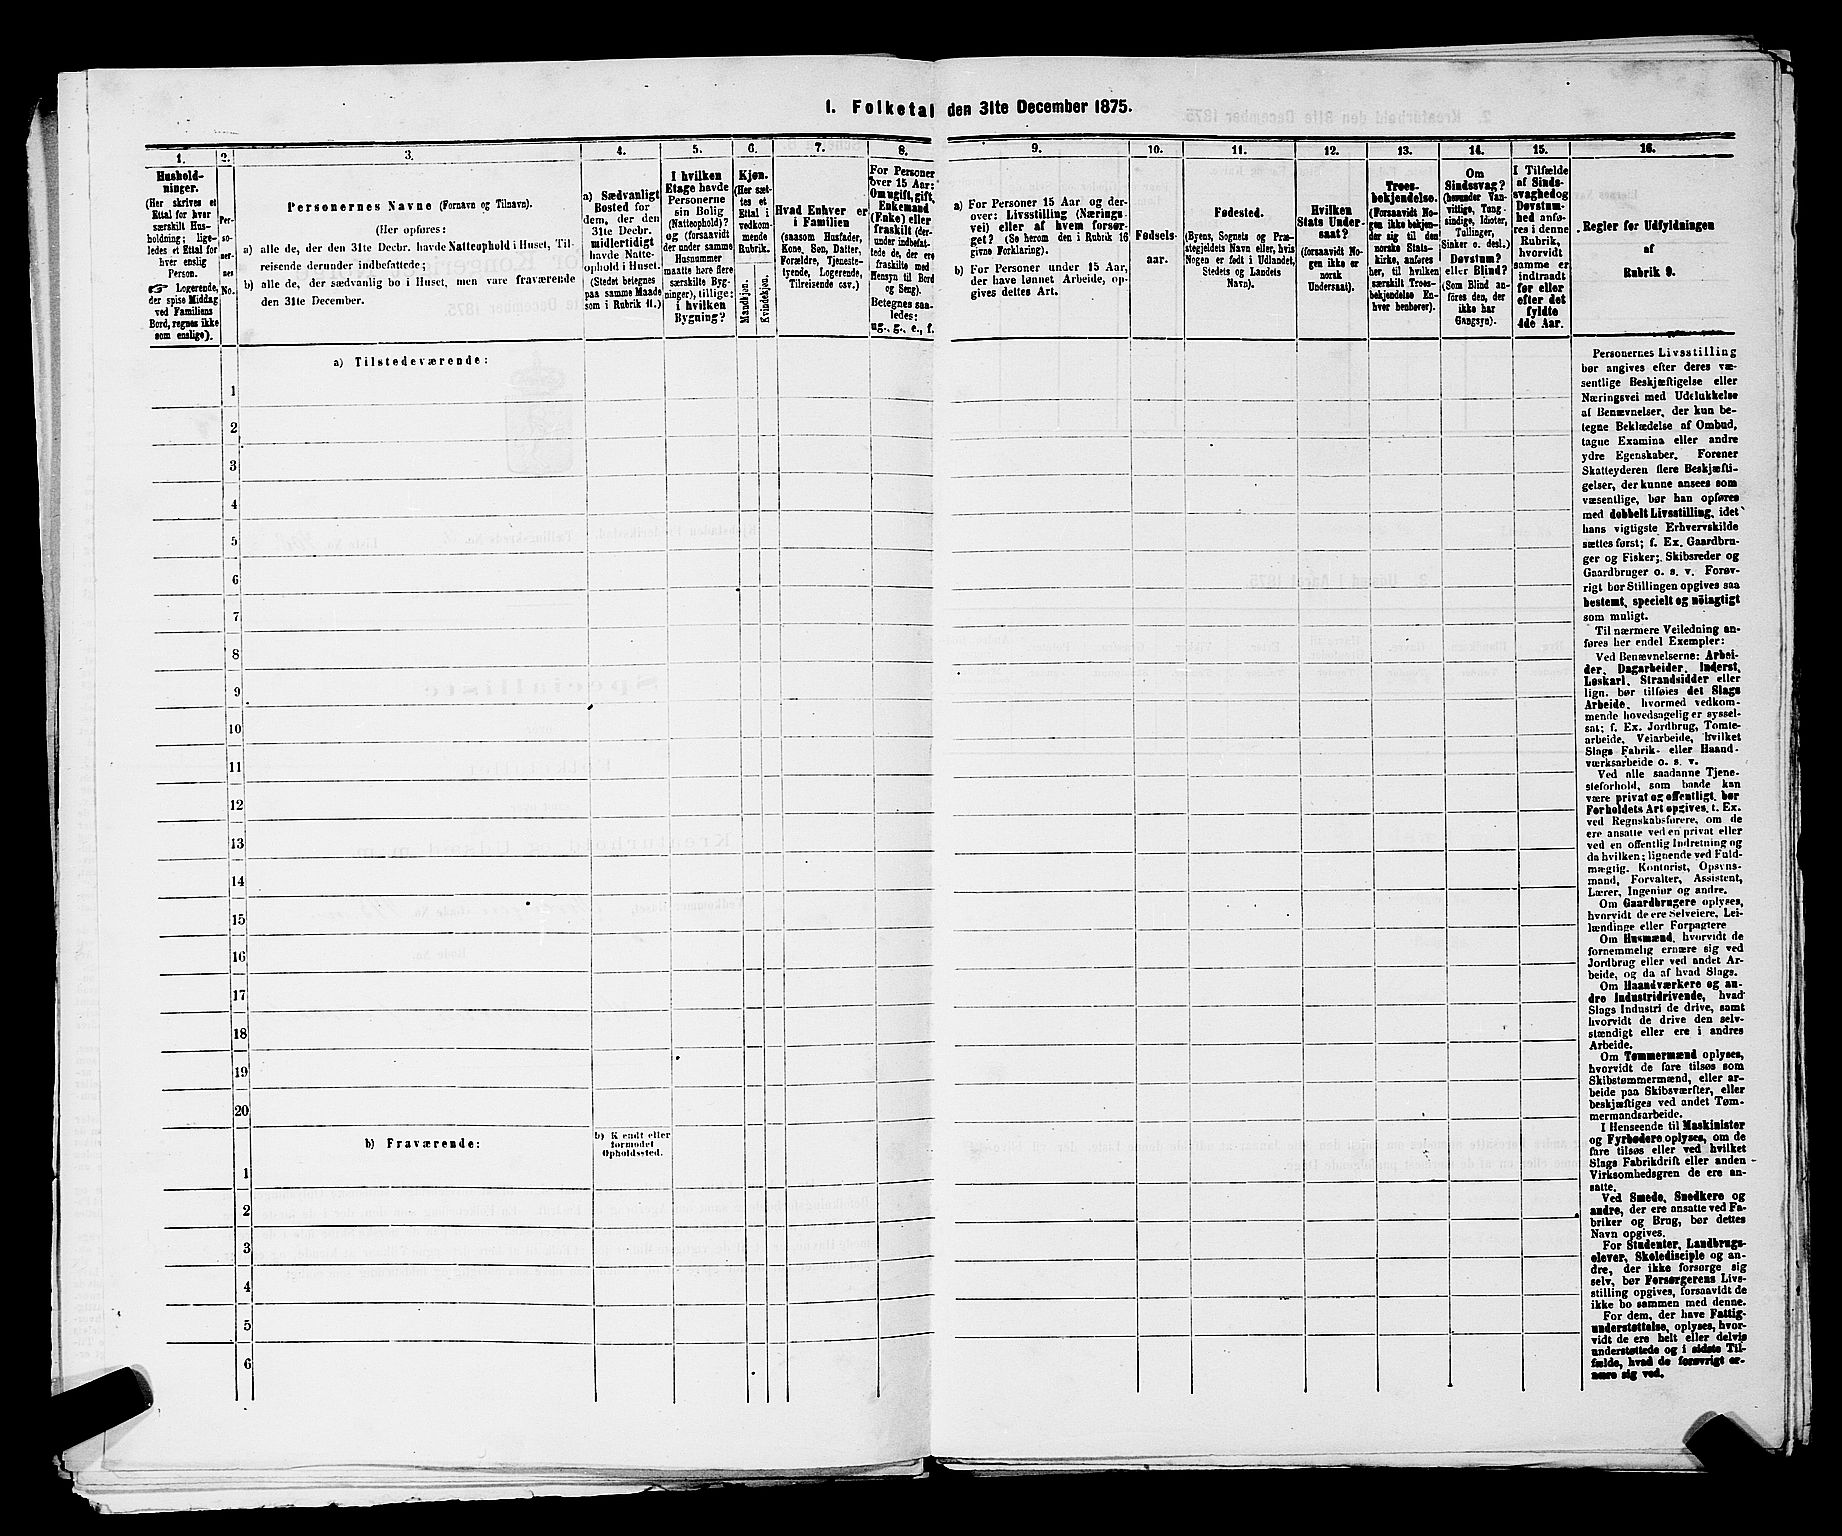 1. Folketal den 31te December 1875.
1.
Hushold-
ninger.
(Her skrives et
Ettal for hver
særskilt Hus-
holdning; lige-
ledes et Ettal for
hver enslig
Person.
☞ Logerende,
der spise Middag
ved Familiens
Bord, regnes ikke
som enslige).
2.
Per-
so-
ner-
nes
No.
3.
Personernes Navne (Fornavn og Tilnavn).
(Her opføres:
a) alle de, der den 31te Decbr. havde Natteophold i Huset, Til-
reisende derunder indbefattede;
b) alle de, der sædvanlig bo i Huset, men vare fraværende
den 31te December.
4.
a) Sædvanligt
Bosted for
dem, der den
31te Decbr.
midlertidigt
havde Natte-
ophold i Huset.
(Stedet betegnes
paa samme Maade
som i Rubrik 11.)
5.
I hvilken
Etage havde
Personerne
sin Bolig
(Natteophold)?
og (forsaavidt
der under samme
Husnummer
maatte høre flere
særskilte Byg-
ninger), tillige:
i hvilken
Bygning?
6.
Kjøn.
(Her sæt-
tes et
Ettal i
vedkom-
mende
Rubrik.
Mandkjøn.
Kvindekjøn.
7.
Hvad Enhver er
i Familien
(saasom Husfader,
Kone, Søn, Datter,
Forældre, Tjeneste-
tyende, Logerende,
Tilreisende osv.)
8.
For Personer
over 15 Aar:
Om ugift, gift,
Enkemand
(Enke) eller
fraskilt (der-
under indbefat-
tede de, der ere
fraskilte med
Hensyn til Bord
og Seng).
Betegnes saa-
ledes:
ug., g., e., f.
9.
a) For Personer 15 Aar og der-
over: Livsstilling (Nærings-
vei) eller af hvem forsør-
get? (Se herom den i Rubrik 16
givne Forklaring).
b) For Personer under 15 Aar,
der have lønnet Arbeide, op-
gives dettes Art.
10.
Fødsels-
aar.
11.
Fødested.
(Byens, Sognets og Præ-
stegjeldets Navn eller, hvis
Nogen er født i Udlandet,
Stedets og Landets
Navn).
12.
Hvilken
Stats Under-
saat?
(forsaavidt No-
gen ikke er
norsk
Undersaat).
13.
Troes-
bekjendelse.
(Forsaavidt No-
gen ikke bekjen-
der sig til den
norske Stats-
kirke, anføres
her, til hvilken
særskilt Troes-
bekjendelse En-
hver henhører).
14.
Om
Sindssvag?
(herunder Van-
vittige, Tung-
sindige, Idioter,
Tullinger,
Sinker o. desl.)
Døvstum?
eller Blind?
(Som Blind an-
føres den, der
ikke har
Gangsyn).
15.
I Tilfælde
af Sinds-
svaghed og
Døvstum-
hed anfø-
res i denne
Rubrik,
hvorvidt
samme er
indtraadt
før eller
efter det
fyldte
4de Aar.
16.
Regler for Udfyldningen
af
Rubrik 9.
Personernes Livsstilling
bør angives efter deres væ-
sentlige Beskjæftigelse eller
Næringsvei med Udelukkelse
af Benævnelser, der kun be-
tegne Beklædelse af Ombud,
tagne Examina eller andre
ydre Egenskaber. Forener
Skatteyderen flere Beskjæfti-
gelser, der kunne ansees som
væsentlige, bør han opføres
med dobbelt Livsstilling, idet
hans vigtigste Erhvervskilde
sættes først; f. Ex. Gaardbru-
ger og Fisker; Skibsreder og
Gaardbruger o. s. v. Forøv-
rigt bør Stillingen opgives saa
bestemt, specielt og nöiagtigt
som muligt.
Til nærmere Veiledning an-
føres her endel Exempler:
Ved Benævnelserne: Arbei-
der, Dagarbeider, Inderst,
Løskarl, Strandsidder eller
lign. bør tilføies det Slags
Arbeide, hvormed vedkom-
mende hovedsagelig er syssel-
sat; f. Ex. Jordbrug, Tomte-
arbeide, Veiarbeide, hvilket
Slags Fabrik- eller Haand-
værksarbeide o. s. v.
Ved alle saadanne Tjene-
steforhold, som baade kan
være privat og offentligt, bør
Forholdets Art opgives, t. Ex.
ved Regnskabsførere, om de
ere ansatte ved en privat eller
ved en offentlig Indretning og
da hvilken; lignende ved Fuld-
mægtig, Kontorist, Opsyns-
mand, Forvalter, Assistent,
Lærer, Ingeniør og andre.
Om Gaardbrugere oplyses,
hvorvidt de ere Selveiere, Lei-
lændinge eller Forpagtere
Om Husmænd, hvorvidt de
fornemmelig ernære sig ved
Jordbrug eller ved andet Ar-
beide, og da af hvad Slags.
Om Haandværkere og an-
dre Industridrivende, hvad
Slags Industri de drive, samt
hvorvidt de drive den selv-
stændigt eller ere i andres
Arbeide.
Om Tømmermænd oplyses,
hvorvidt de fare tilsøs som
Skibstømmermænd, eller ar-
beide paa Skibsværfter, eller
beskjæftiges ved andet Tøm-
mermandsarbeide.
I Henseende til Maskinister
og Fyrbødere oplyses, om de
fare tilsøs eller ved hvilket
Slags Fabrikdrift eller anden
Virksomhedsgren de ere an-
satte.
Ved Smede, Snedkere og
andre, der ere ansatte ved Fa-
briker og Brug, bør dettes
Navn opgives.
For Studenter, Landbrugs-
elever, Skoledisciple og an-
dre, der ikke forsørge sig
selv, bør Forsørgerens Livs-
stilling opgives, forsaavidt de
ikke bo sammen med denne.
For dem, der have Fattig-
understøttelse, oplyses, hvor-
vidt de ere helt eller delvis
understøttede og i sidste Til-
fælde, hvad de forøvrigt er-
nære sig ved.
a) Tilstedeværende:
1
2
3
4
5
6
7
8
9
10
11
12
13
14
15
16
17
18
19
20
b) Fraværende:
b) Kjendt eller
formodet
Opholdssted.
1
2
3
4
5
6